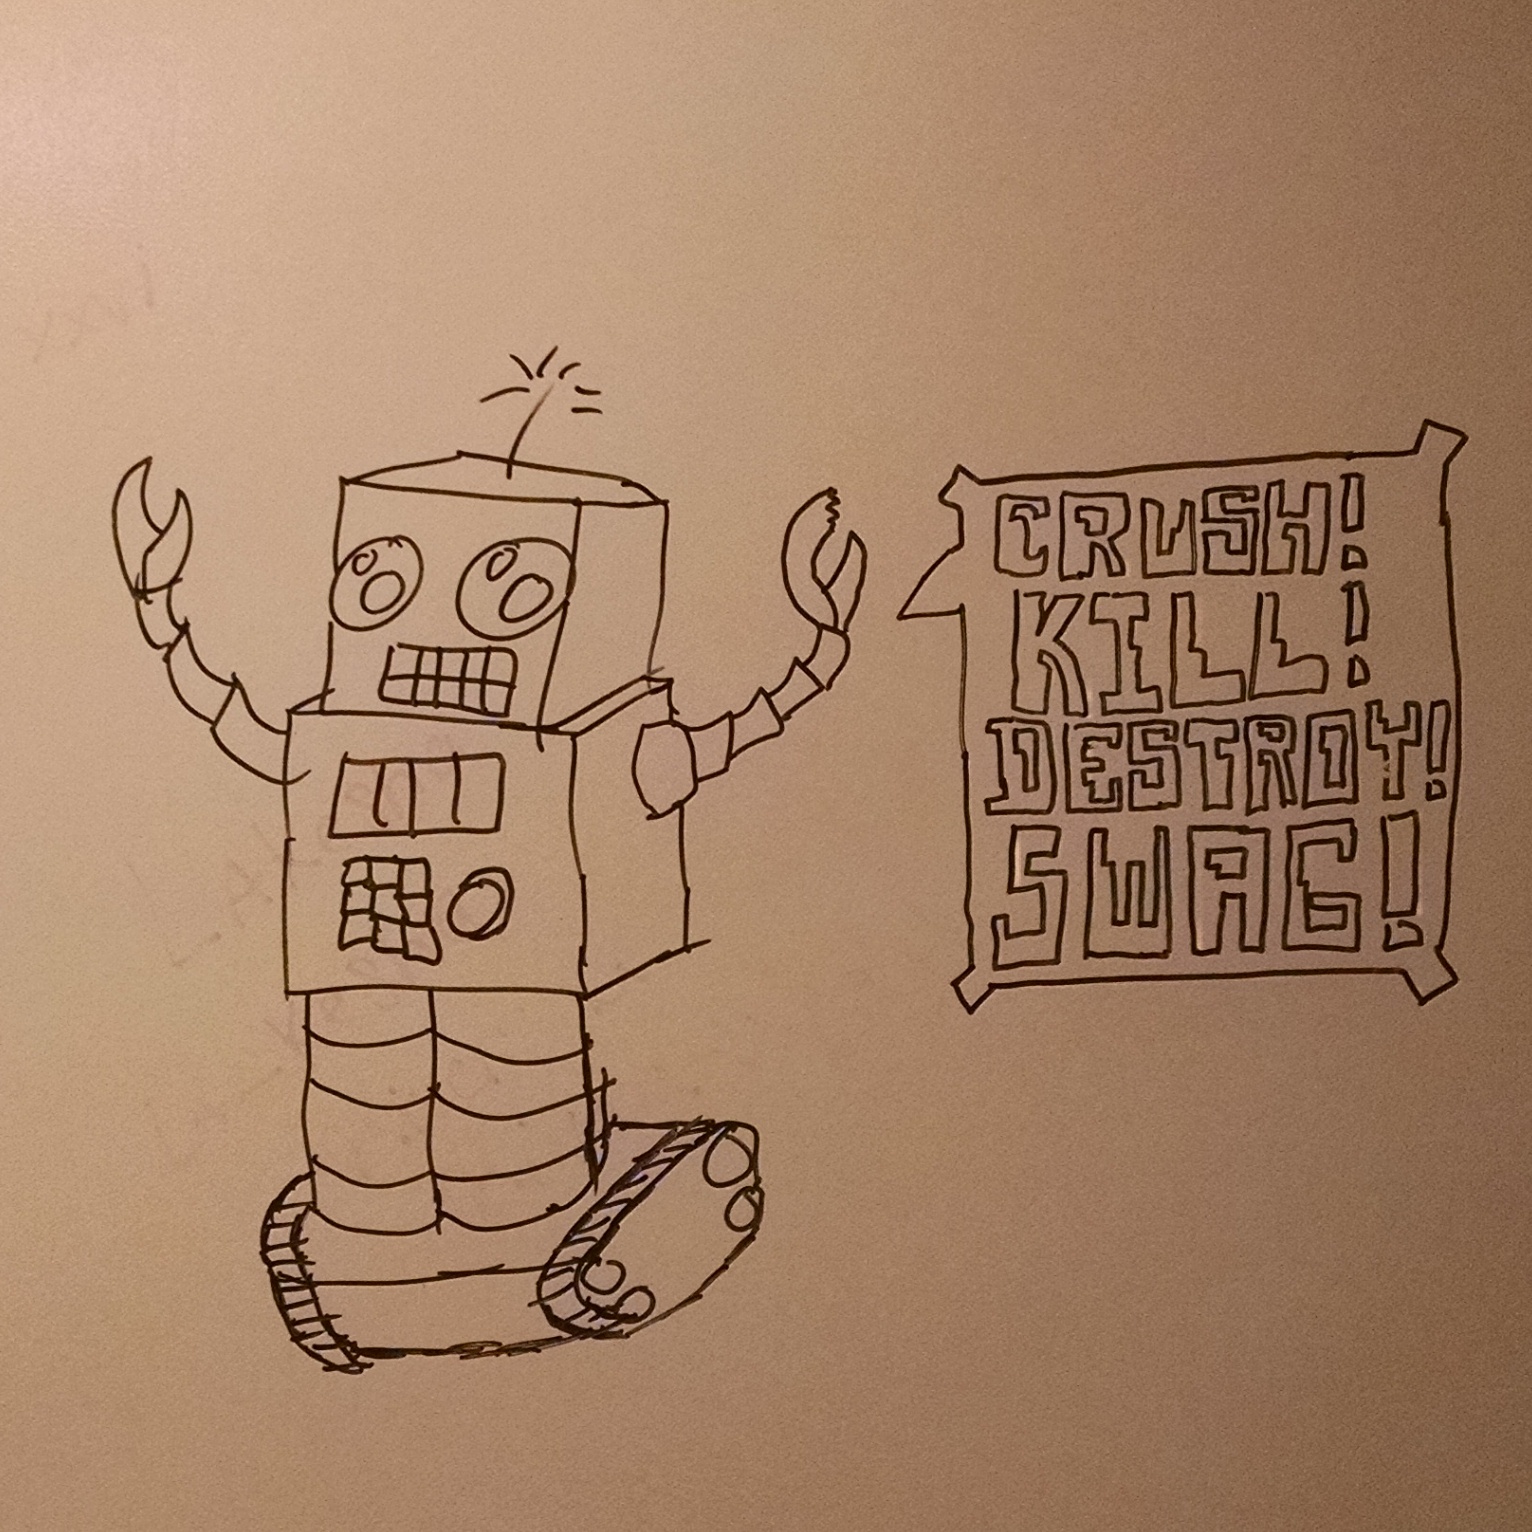 CRUSH!
KILL!
DESTROY!
SWAG!